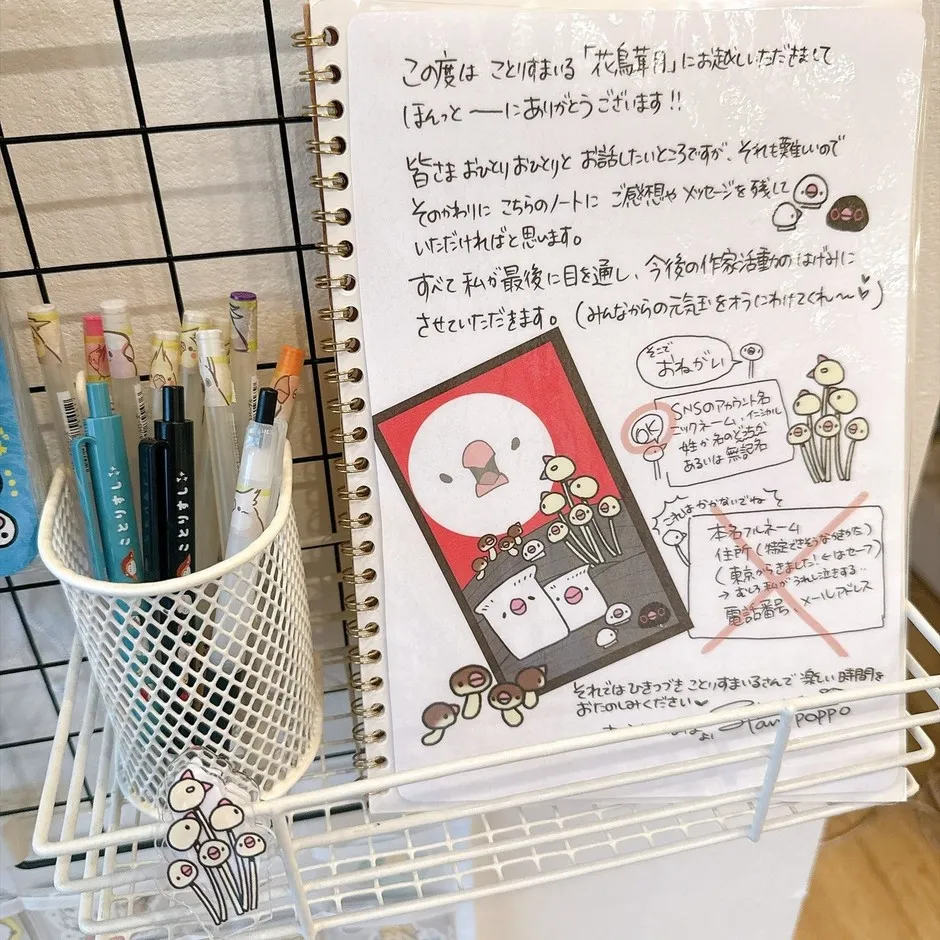 この度は ことりすまいる「花鳥華月」にお越しいただきまして
ほんっと――にありがとうございます!!
皆さま おひとりおひとりと お話したいところですが、それも難しいので
そのかわりに こちらのノートに ご感想や メッセージを残して
いただければと思います。
すべて 私が最後に目を通し、今後の作家活動の はげみに
させていただきます。(みんなからの元気玉をオラにわけてくれ〜)
そこで
おねがい
OK
SNSのアカウント名
ニックネーム、イニシャル
姓か名のどちらか
あるいは無記名
これはかかないでね
本名フルネーム
住所(特定できそうなかきかた)
(東京からきました、とかはセーフ
→むしろ私がうれし泣きする…
電話番号、メールアドレス
それではひきつづき ことりすまいるさんで 楽しい時間を
おたのしみください
poppo
ことりすまいる
ことりすまいる